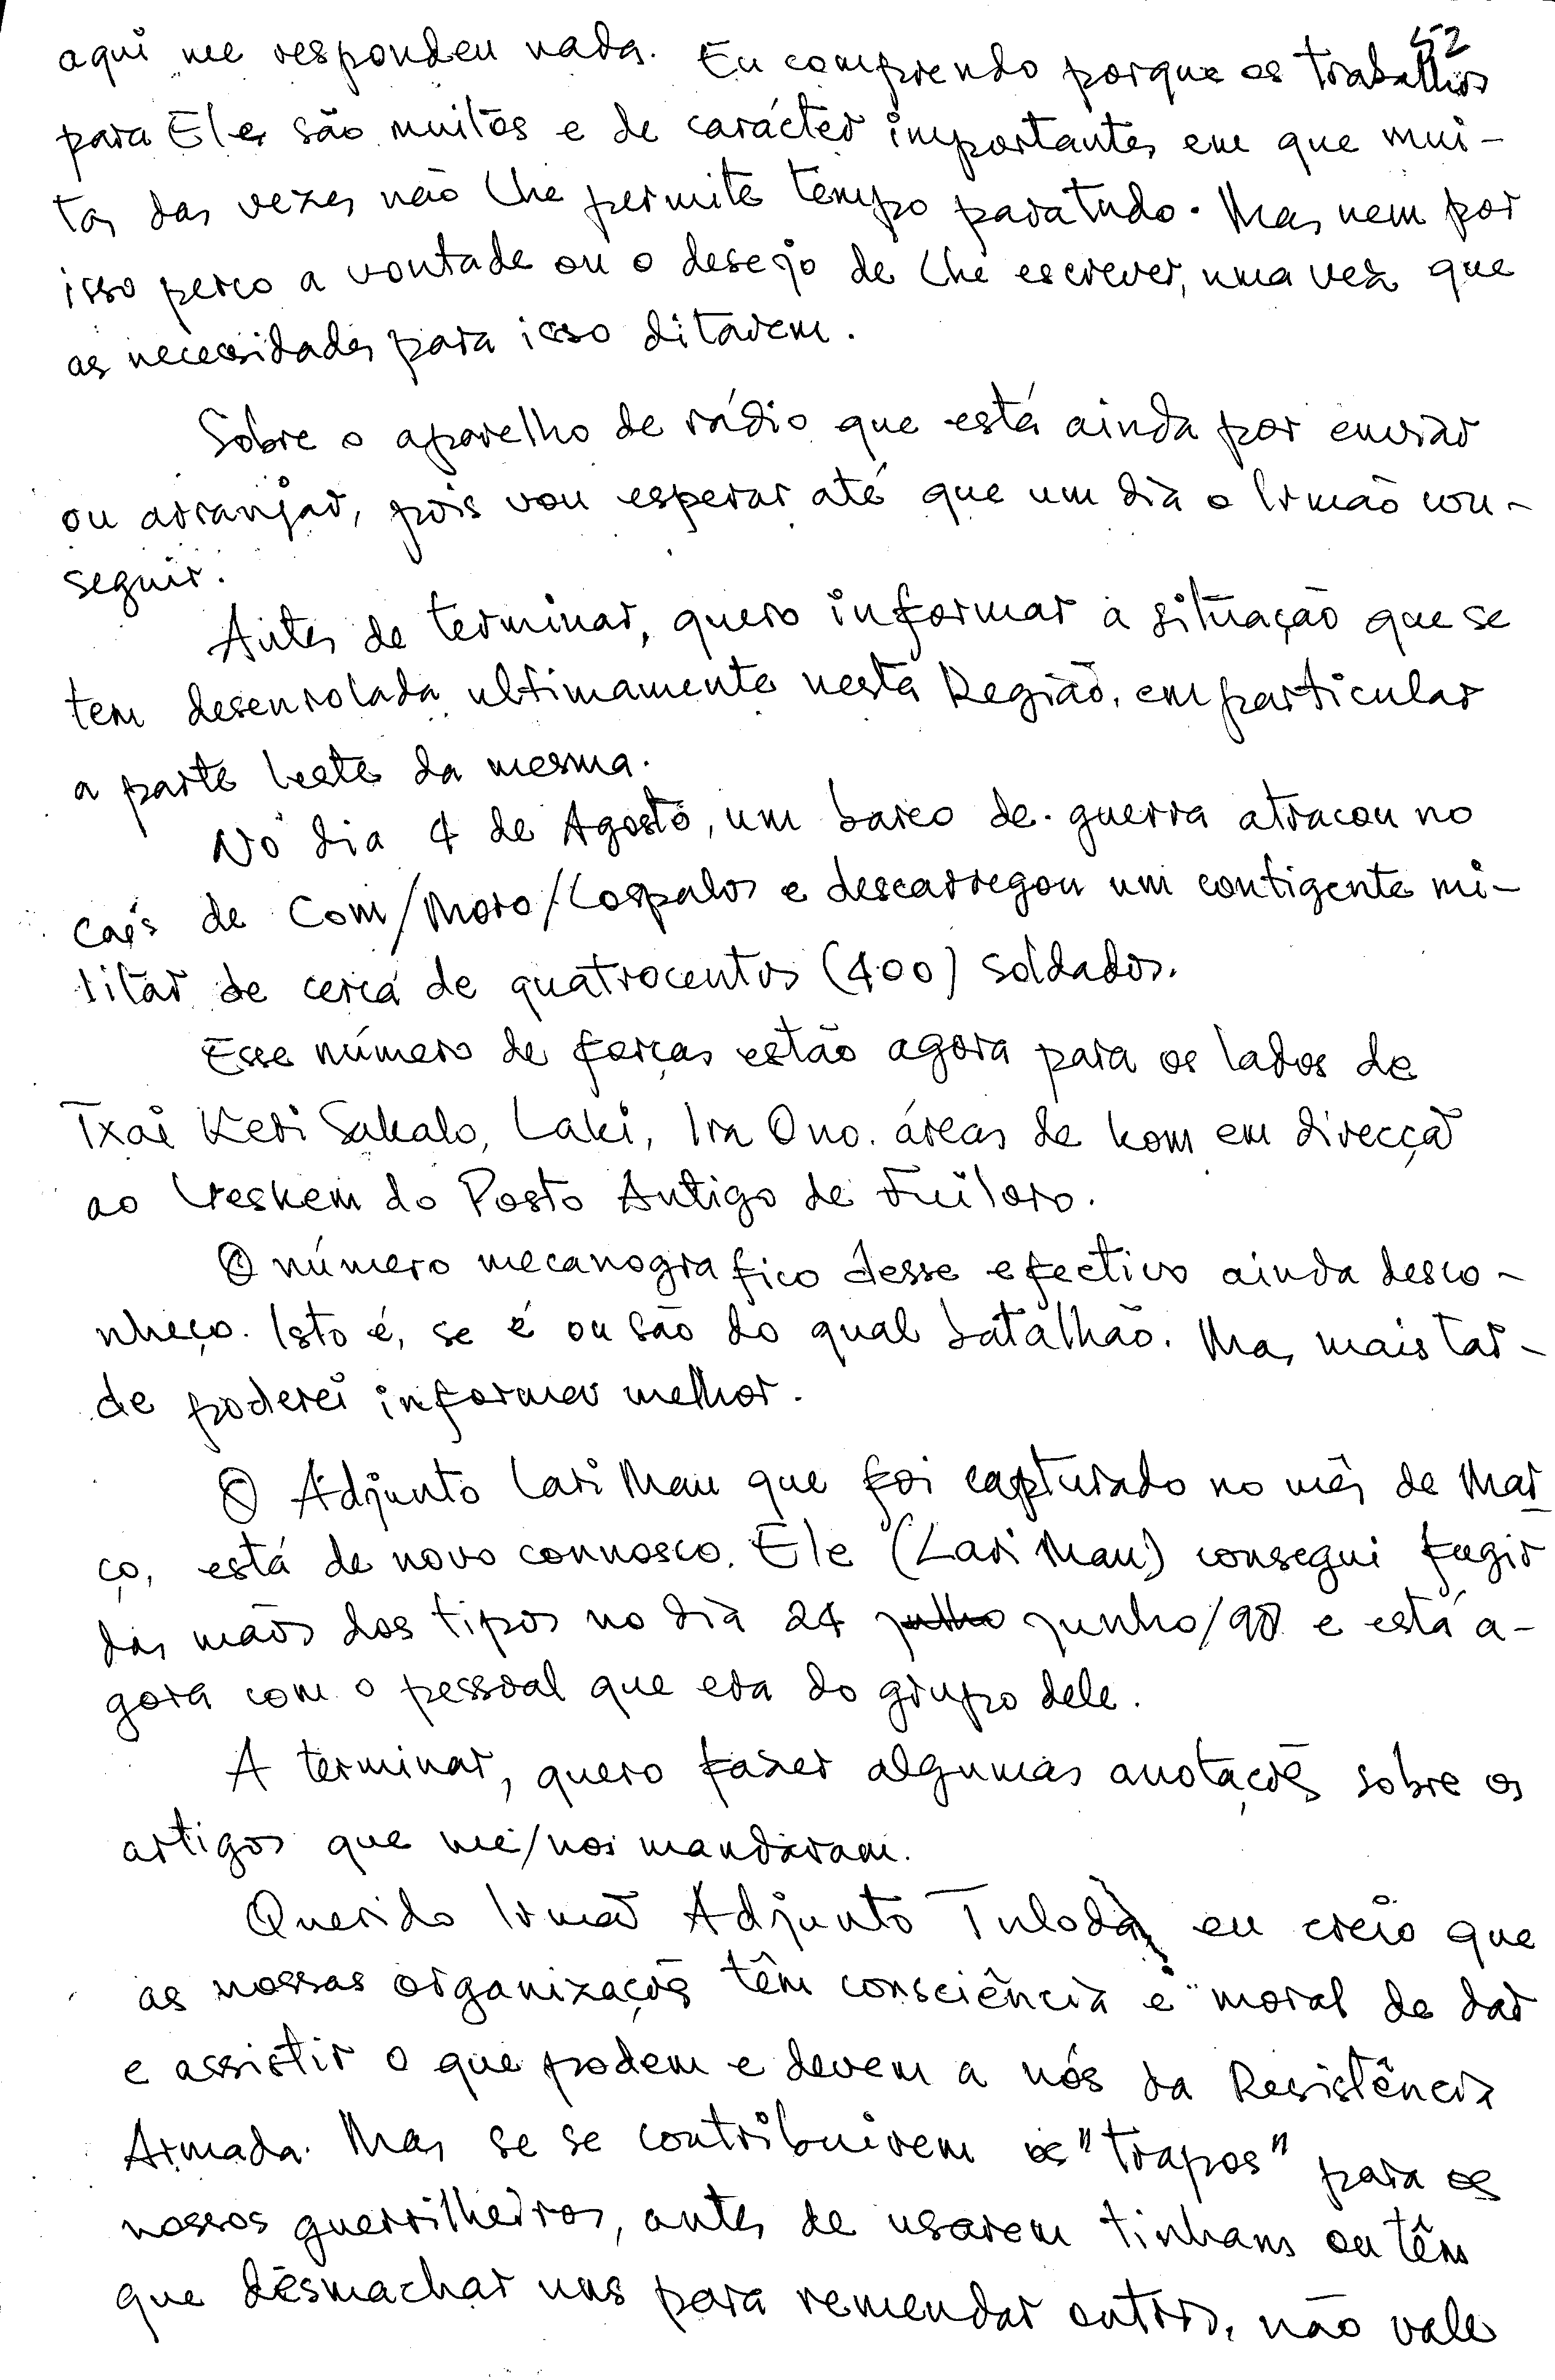 52
aqui me respondeu nada. Eu comprendo porque os trabalhos
para Ele são muitos e de carácter importantes em que mui-
tas das vezes não lhe permite tempo para tudo. Mas nem por
isso perco a vontade ou o desejo de lhe escrever, uma vez que
as necessidades para isso ditarem.
Sobre o aparelho de rádio que está ainda por enviar
ou arranjar, pois vou esperar até que um dia o Irmão con-
seguir.
Antes de terminar, quero informar a situação que se
tem desenrolada ultimamente nesta Região, em particular
a parte leste da mesma.
No dia 4 de Agosto, um barco de guerra atracou no
cais de Com/Moro/Lospalos e descarregou um contigente mi-
litar de cerca de quatrocentos (400) soldados.
Esse número de forças estão agora para os lados de
Txai Keri Sakalo, Laki, Ira Ono. áreas de kom em direcção
ao do Posto Antigo de Fuiloro.
O número mecanografico desse efectivo ainda desco-
nheço. Isto é, se é ou são do qual batalhão. Mas, mais tar-
de poderei informar melhor.
O Adjunto Lari Mau que foi capturado no mês de Mar
ço, está de novo connosco. Ele (Lari Mau) consegui fugir
das mãos dos tipos no dia 24 julho junho/98 e está a-
gora com o pessoal que era do grupo dele.
A terminar, quero fazer algumas anotações sobre os
artigos que me/nos mandaram.
Querido Irmão Adjunto Tulodà, eu creio que
as nossas organizações têm consciência e moral de dar
e assistir o que podem e devem a nós da Resistência
Armada. Mas se se contribuirem os "trapos" para os
nossos guerrilheiros, antes de usarem tinhans ou têm
que desmachar uns para remendar outros, não vale